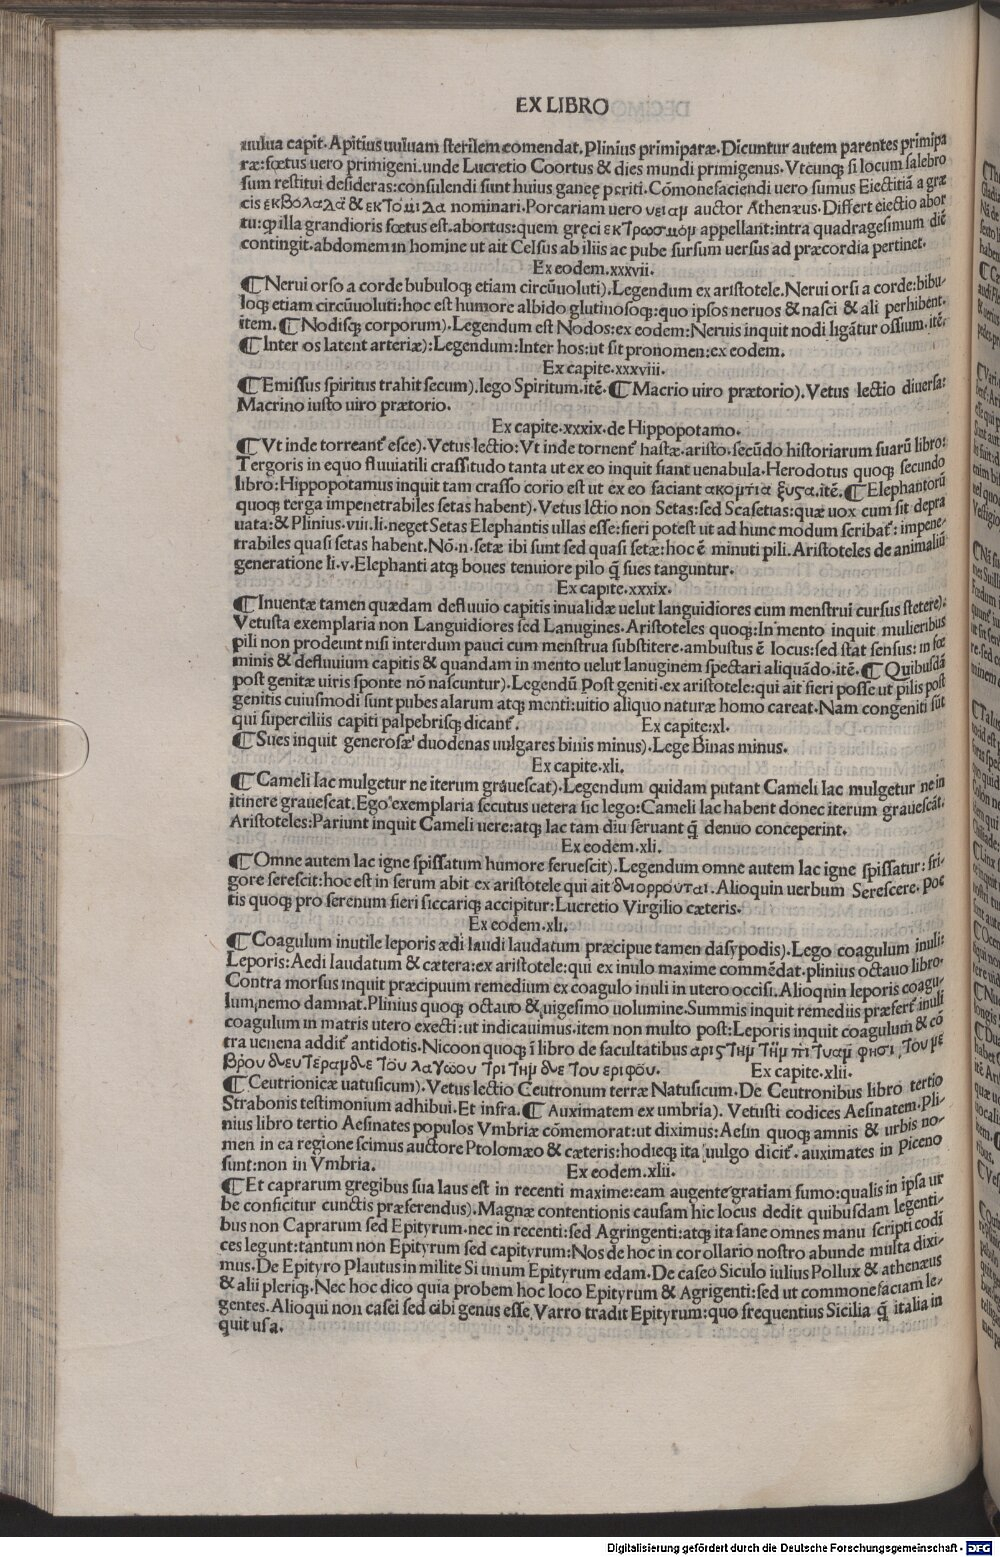 EX LIBRO
uulua capit. Apitius uuluam sterilem comendat. Plinius primiparæ. Dicuntur autem parentes primipa
ræ: fœtus uero primigeni. unde Lucretio Coortus & dies mundi primigenus. Vtcunq; si locum salebro
sum restitui desideras: consulendi sunt huius ganeę periti. Cōmonefaciendi uero sumus Eiectitiā a græ
cis nominari. Porcariam uero auctor Athenæus. Differt eiectio abor
tu: ꝙ illa grandioris fœtus est. abortus: quem gręci appellant: intra quadragesimum diē
contingit. abdomem in homine ut ait Celsus ab iliis ac pube sursum uersus ad præcordia pertinet.
Ex eodem. xxxvii.
¶ Nerui orso a corde bubuloq; etiam circūuoluti). Legendum ex aristotele. Nerui orsi a corde: bibu-
loq; etiam circūuoluti: hoc est humore albido glutinosoq;: quo ipsos neruos & nasci & ali perhibent.
item. ¶ Nodisq; corporum). Legendum est Nodos: ex eodem: Neruis inquit nodi ligātur ossium. itē.
¶ Inter os latent arteriæ): Legendum: Inter hos: ut sit pronomen: ex eodem.
Ex capite. xxxviii.
¶ Emissus spiritus trahit secum). lego Spiritum. itē. ¶ Macrio uiro prætorio). Vetus lectio diuersa:
Macrino iusto uiro prætorio.
Ex capite. xxxix. de Hippopotamo.
¶ Vt inde torreant' esce). Vetus lectio: Vt inde tornent' hastæ. aristo. secūdo historiarum suarū libro:
Tergoris in equo fluuiatili crassitudo tanta ut ex eo inquit fiant uenabula. Herodotus quoq; secundo
libro: Hippopotamus inquit tam crasso corio est ut ex eo faciant ακομτια ξυςα. itē. ¶ Elephantorū
quoq; terga impenetrabiles setas habent). Vetus lctio non Setas: sed Scasetias: quæ uox cum sit depra
uata: & Plinius. viii. li. neget Setas Elephantis ullas esse: fieri potest ut ad hunc modum scribat': impene-
trabiles quasi setas habent. Nō. n. setæ ibi sunt sed quasi setæ: hoc ē minuti pili. Aristoteles de animaliū
generatione li. v. Elephanti atq; boues tenuiore pilo q̄ sues tanguntur.
Ex capite. xxxix.
¶ Inuentæ tamen quædam defluuio capitis inualidæ uelut languidiores cum menstrui cursus stetere):
Vetusta exemplaria non Languidiores sed Lanugines. Aristoteles quoq;: In mento inquit mulieribus
pili non prodeunt nisi interdum pauci cum menstrua substitere. ambustus ē locus: sed stat sensus: in fœ
minis & defluuium capitis & quandam in mento uelut lanuginem spectari aliquādo. itē. ¶ Quibusdā
post genitæ uiris sponte nō nascuntur). Legendū Post geniti. ex aristotele: qui ait fieri posse ut pilis post
genitis cuiusmodi sunt pubes alarum atq; menti: uitio aliquo naturæ homo careat. Nam congeniti sūt
qui superciliis capiti palpebrisq; dicant'. Ex capite: xl.
¶ Sues inquit generosæ duodenas uulgares binis minus). Lege Binas minus.
Ex capite. xli.
¶ Cameli lac mulgetur ne iterum grauescat). Legendum quidam putant Cameli lac mulgetur ne in
itinere grauescat. Ego exemplaria secutus uetera sic lego: Cameli lac habent donec iterum grauescāt.
Aristoteles: Pariunt inquit Cameli uere: atq; lac tam diu seruant q̄ denuo conceperint.
Ex eodem. xli.
¶ Omne autem lac igne spissatum humore feruescit). Legendum omne autem lac igne spissatur: fri-
gore serescit: hoc est in serum abit ex aristotele qui ait διορρόυται. Alioquin uerbum Serescere. poe
tis quoq; pro serenum fieri siccariq; accipitur: Lucretio Virgilio cæteris.
Ex eodem. xli.
¶ Coagulum inutile leporis ædi laudi laudatum præcipue tamen dasypodis). Lego coagulum inuli:
Leporis: Aedi laudatum & cætera: ex aristotele: qui ex inulo maxime commēdat. plinius octauo libro.
Contra morsus inquit præcipuum remedium ex coagulo inuli in utero occisi. Alioqnin leporis coagu-
lum nemo damnat. Plinius quoq; octauo & uigesimo uolumine. Summis inquit remediis præfert' inuli
coagulum in matris utero execti: ut indicauimus. item non multo post: Leporis inquit coagulum & cō
tra uenena addit' antidotis. Nicoon quoq; ī libro de facultatibus
Ex capite. xlii.
¶ Ceutrionicæ uatusicum). Vetus lectio Ceutronum terræ Natusicum. De Ceutronibus libro tertio
Strabonis testimonium adhibui. Et infra. ¶ Auximatem ex umbria). Vetusti codices Aesinatem. Pli-
nius libro tertio Aesinates populos Vmbriæ cōmemorat: ut diximus: Aesin quoq; amnis & urbis no-
men in ea regione scimus auctore Ptolomæo & cæteris: hodieq; ita uulgo dicit'. auximates in Piceno
sunt: non in Vmbria. Ex eodem. xlii.
¶ Et caprarum gregibus sua laus est in recenti maxime: eam augente gratiam fumo: qualis in ipsa ur
be conficitur cunctis præferendus). Magnæ contentionis causam hic locus dedit quibusdam legenti-
bus non Caprarum sed Epityrum. nec in recenti: sed Agringenti: atq; ita sane omnes manu scripti codi
ces legunt: tantum non Epityrum sed capityrum: Nos de hoc in corollario nostro abunde multa dixi-
mus. De Epityro Plautus in milite Si unum Epityrum edam. De caseo Siculo iulius Pollux & athenæus
& alii pleriq;. Nec hoc dico quia probem hoc loco Epityrum & Agrigenti: sed ut commonefaciam le-
gentes. Alioqui non casei sed cibi genus esse Varro tradit Epityrum: quo frequentius Sicilia q̄ italia in
quit usa.
Digitalisierung gefördert durch die Deutsche Forschungsgemeinschaft - DFG